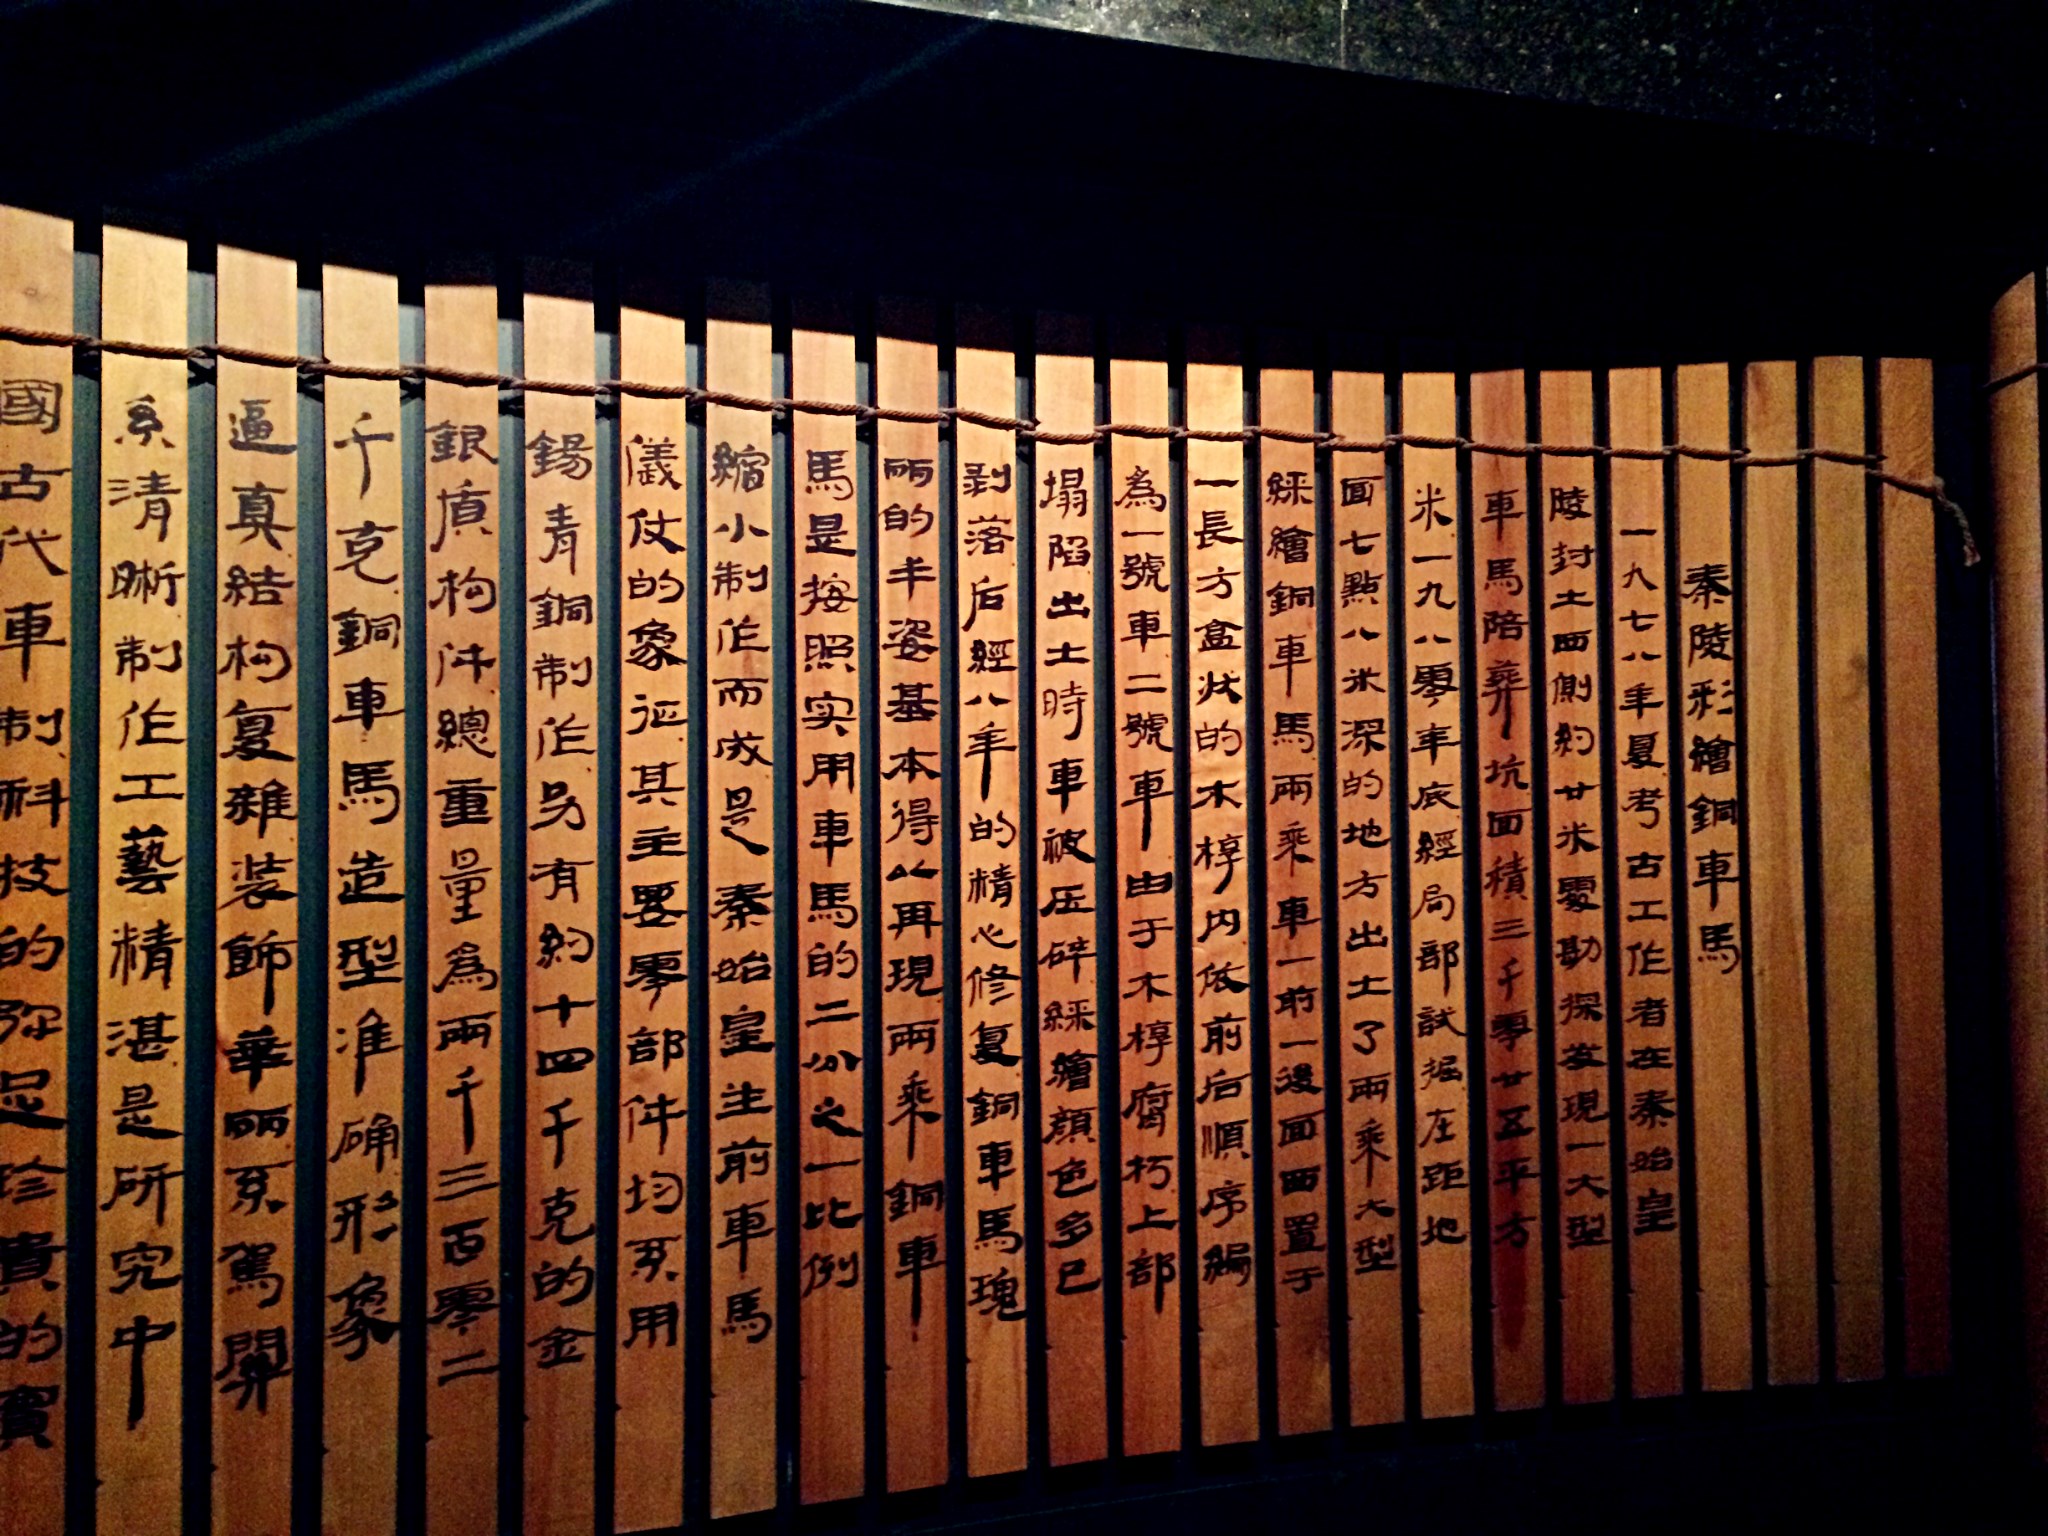 秦陵彩繪銅車馬
一九七八年夏考古工作者在秦始皇
陵封土西側約廿米處勘探发現一大型
車馬陪葬坑面積三千零廿五平方
米一九八零年底經局部試掘在距地
面七點八米深的地方出土了兩乘大型
綵繪銅車馬兩乘車一前一後面西置于
一長方盒狀的木椁内依前后順序編
爲一號車二號車由于木椁腐朽上部
塌陷出土時車被压碎綵繪顔色多已
剥落后經八年的精心修复銅車馬瑰
丽的丰姿基本得以再現兩乘銅車
馬是按照实用車馬的二分之一比例
縮小制作而成是秦始皇生前車馬
儀仗的象征其主要零部件均系用
錫青銅制作另有約十四千克的金
銀質构件總重量爲兩千三百零二
千克銅車馬造型准确形象
逼真結构复雜装飾華丽系駕関
系清晰制作工藝精湛是研究中
國古代車制科技的弥足珍貴的實